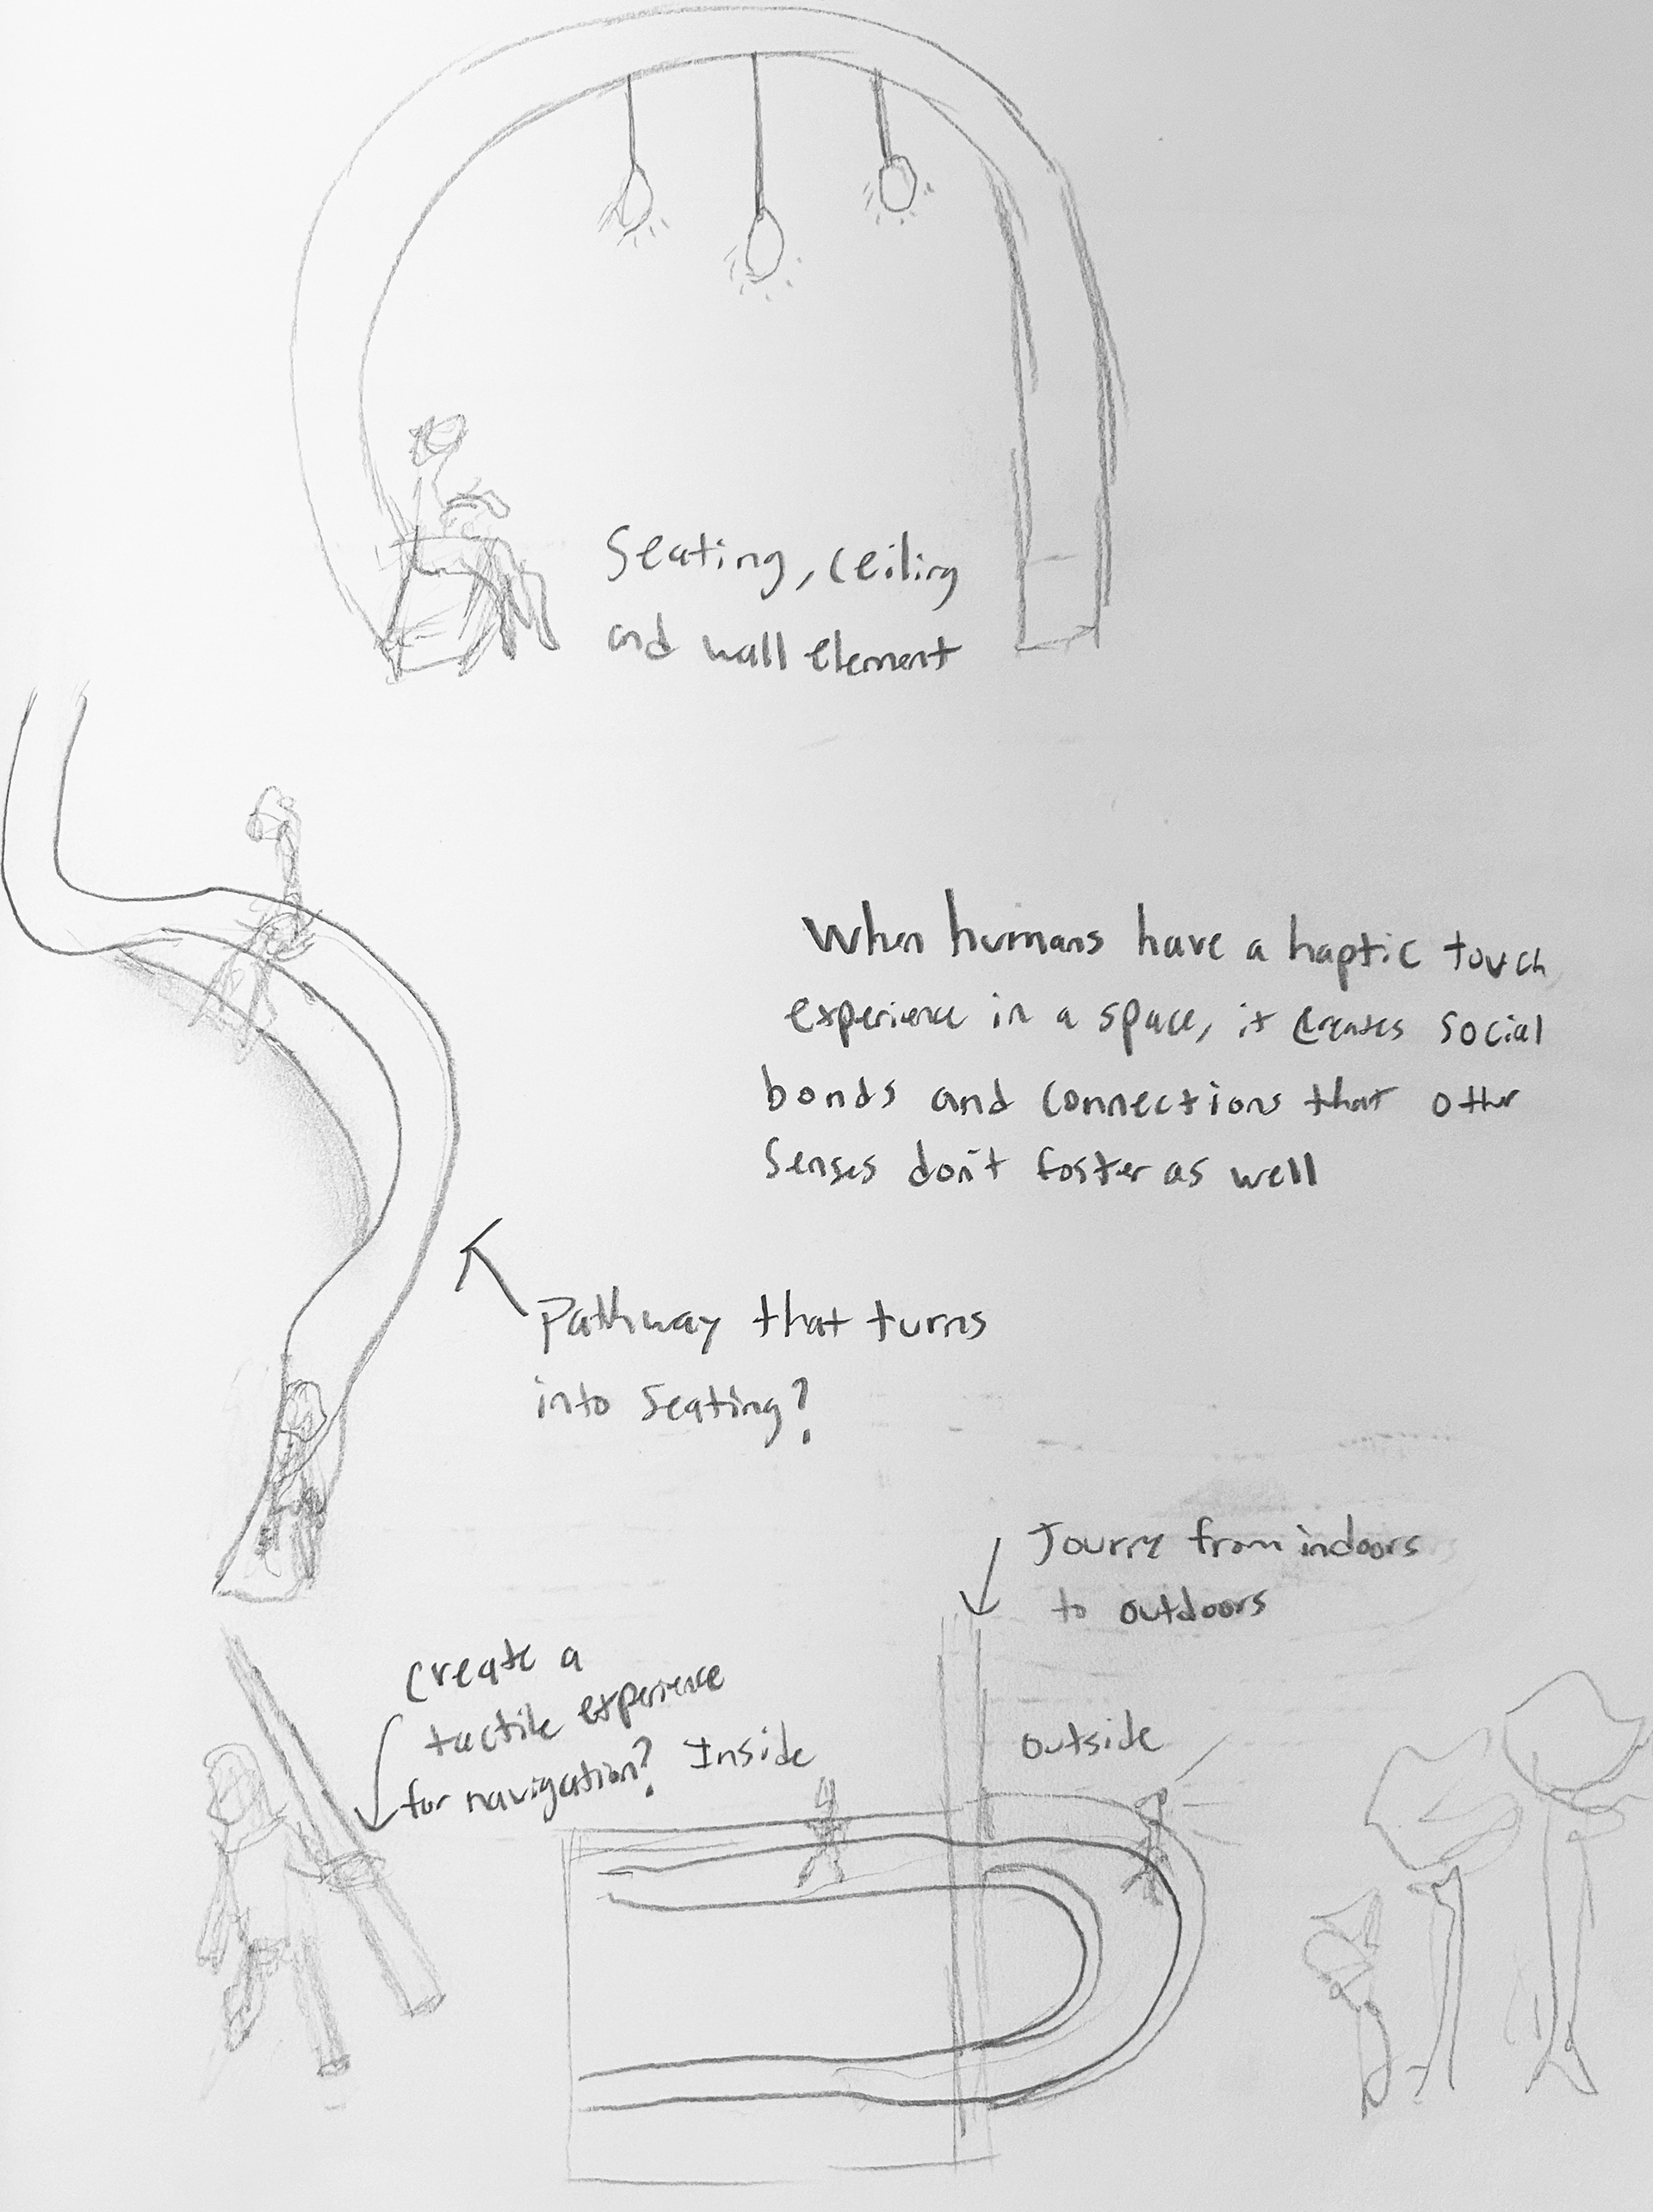 Seating, ceiling
and wall element
When humans have a haptic touch
experience in a space, it creates social
bonds and connections that other
senses don't foster as well
Pathway that turns
into seating?
Journey from indoors
to outdoors
Create a
tactile experience
for navigation?
Inside
outside